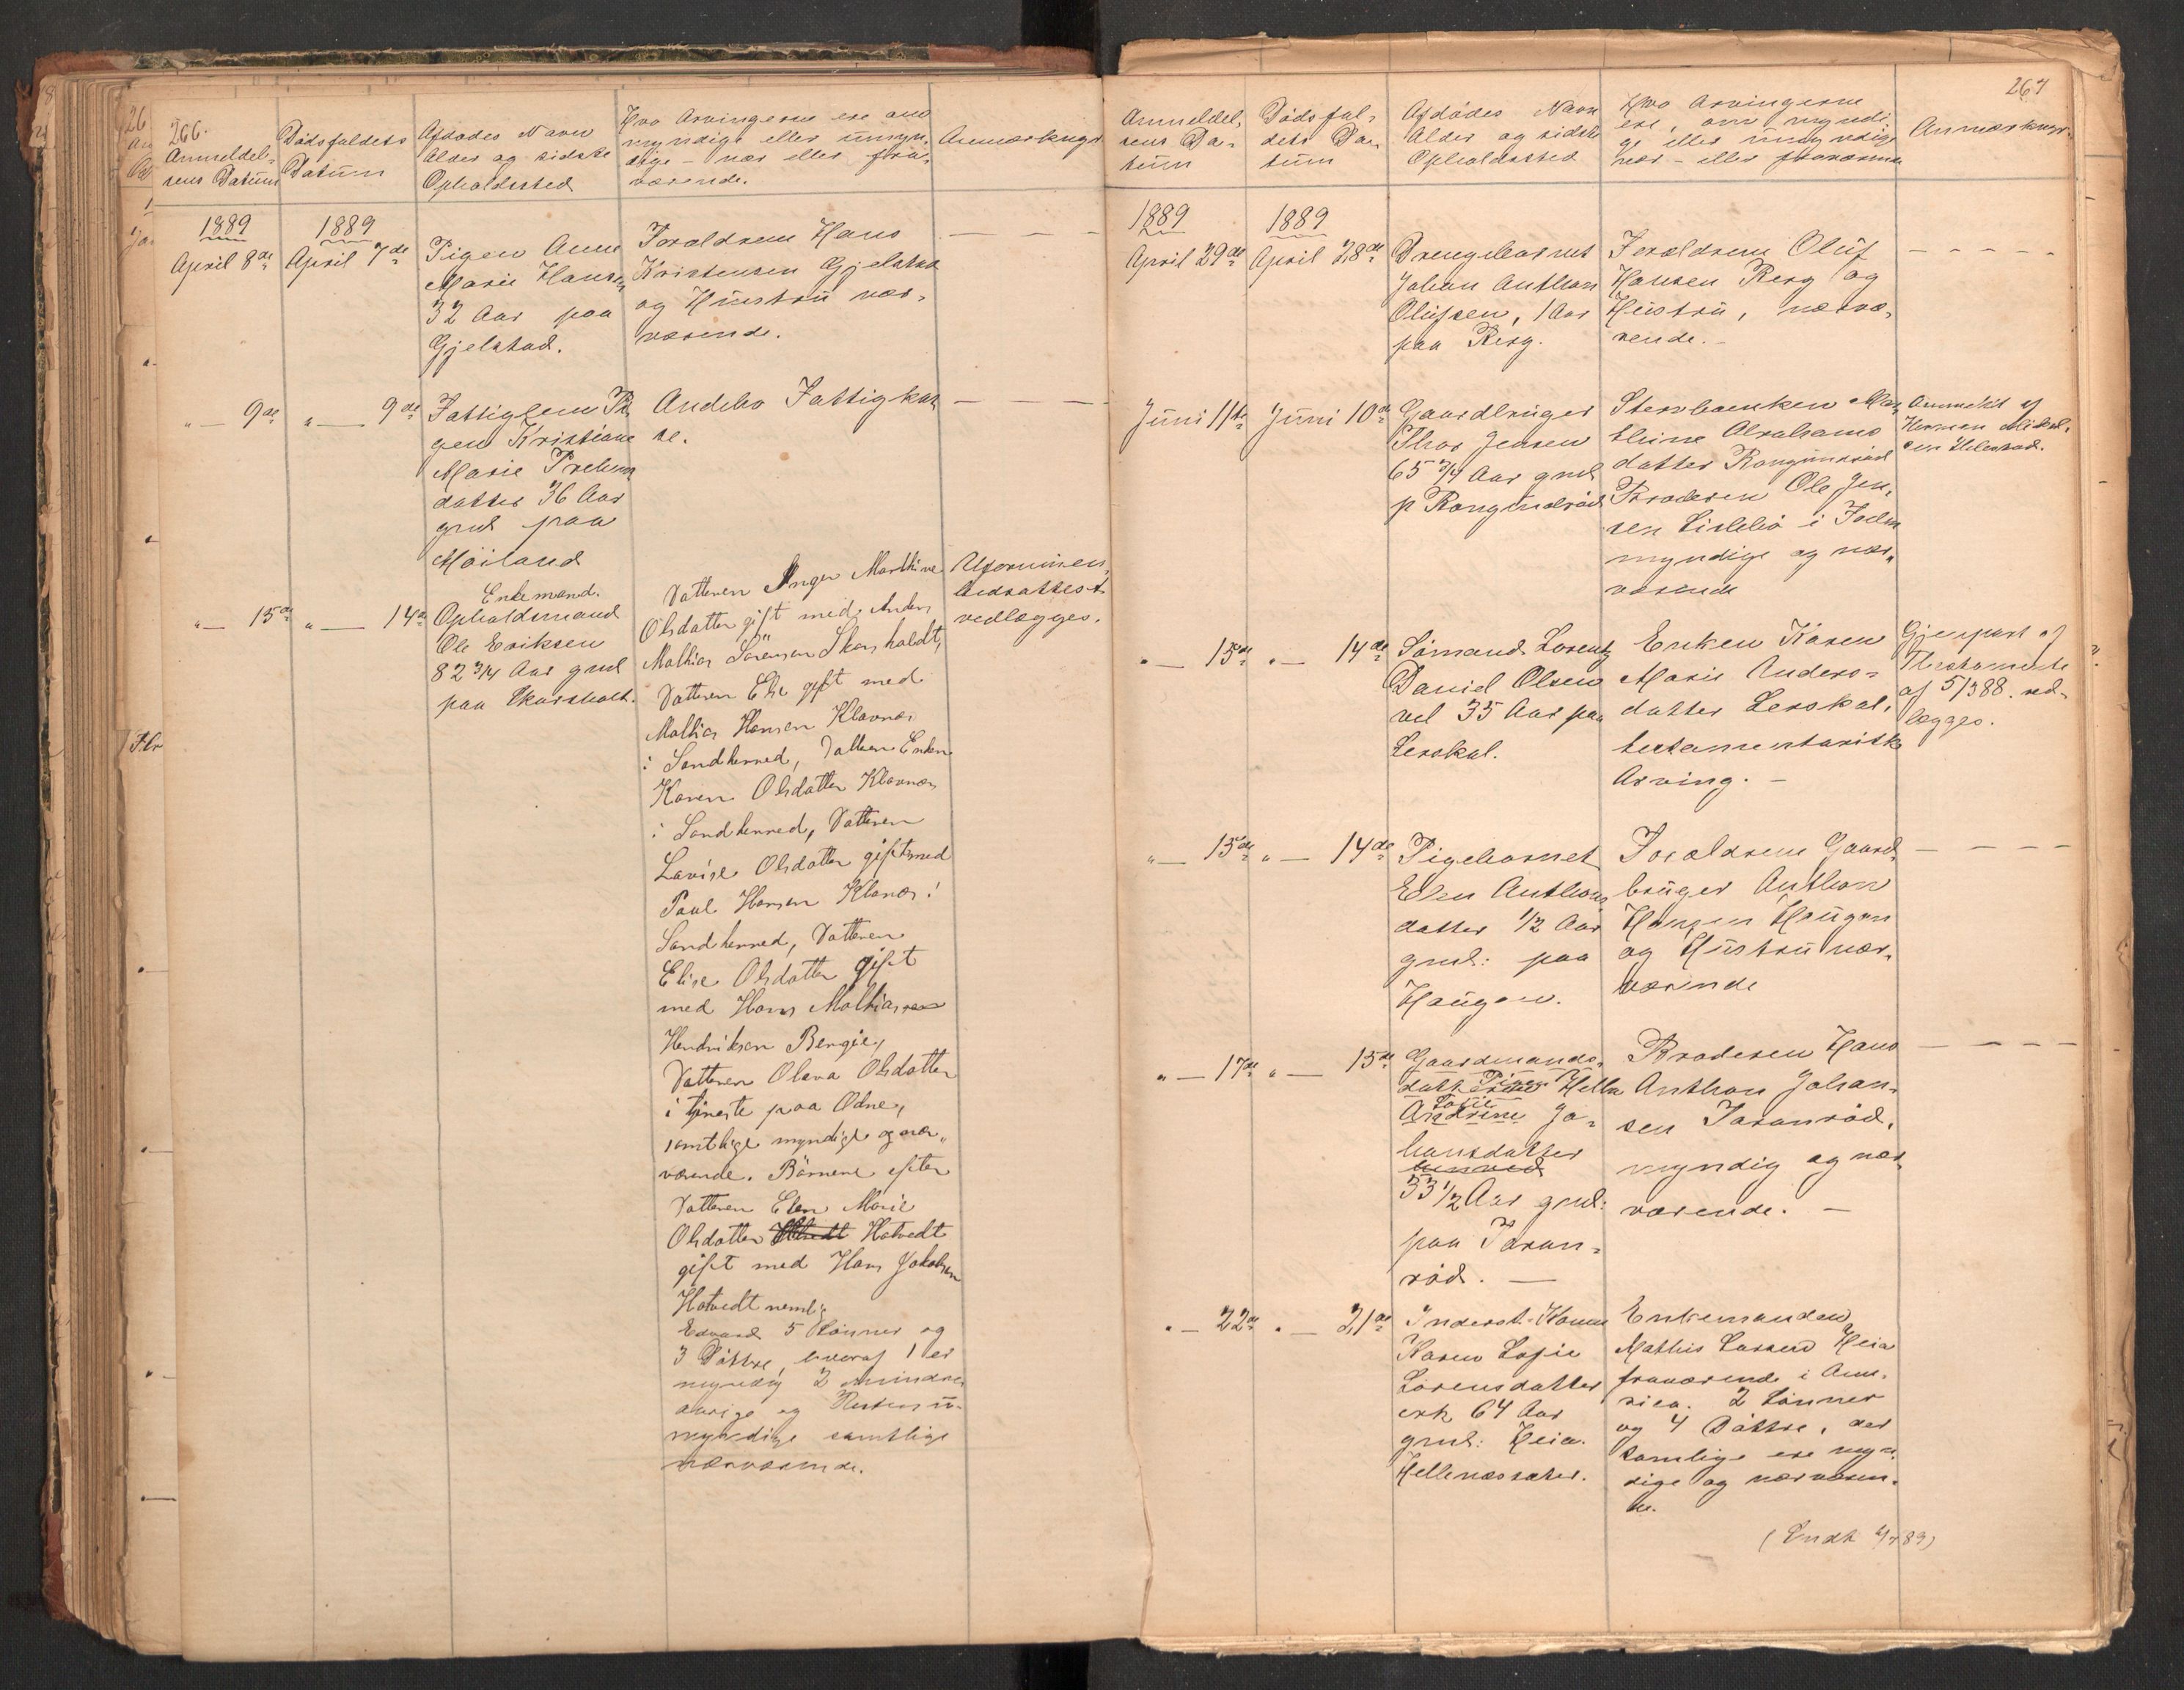 266.
Anmeldel-
sens Datum
Dødsfaldets
Datum
Afdødes Navn
Alder og sidste
Opholdssted
Hvo Arvingerne ere om
myndige eller umyn-
dige – nær eller fra-
værende.
Anmærkngr
1889
April 8de
1889
April 7de
Pigen Anne
Marie Hansen
32 Aar paa
Gjelstad.
Forældrene Hans
Kristensen Gjelstad
og Hustru nær-
værende.
" — 9de
" — 9de
Fattiglem Pi-
gen Kristiane
Marie
datter 36 Aar
gml paa
Møiland
Andebo Fattigkas-
se.
" — 15de
" — 14de
Enkemand.
Opholdsmand
Ole Eriksen
82 3/4 Aar gml
paa Skarsholt.
Datteren Inger Marthine
Olsdatter gift med Anders
Mathias Sørensen Skarsholdt,
Datteren Else gift med
Mathias Hansen Klavnæs
i Sandherred, Datteren Enken
Karen Olsdatter Klavnæs
i Sandherred, Datteren
Lovise Olsdatter gift med
Paul Hansen Klavnæs i
Sandherred, Datteren
Elise Olsdatter gift
med Hans Mathiassen
Hendriksen Bergie,
Datteren Olava Olsdatter
i tjeneste paa Ødne,
samtlige myndige og nær-
værende. Børnene efter
Datteren Elen Marie
Olsdatter Hotvedt
gift med Hans Jakobsen
Hotvedt nemlig
Edvard 5 Sønner og
3 Døttre, hvoraf 1 er
myndig 2 mindre
aarige og Resten u-
myndige samtlige
nærværende.
Uformuen-
hedsattest
vedlægges.
267
Anmeldel-
sens Da-
tum
Dødsfal-
dets Da-
tum
Afdødes Navn
Alder og sidste
Opholdssted
Hvo Arvingerne
ere, om myndi-
ge eller umyndige
nær – eller fraværende
Anmærkngr.
1889
April 29de
1889
April 28de
Drengebarnet
Johan Anthon
Olufsen, 1 Aar
paa Berg.
Forældrene Oluf
Hansen Berg og
Hustru, nærvæ-
rende. –
Juni 11te
Juni 10de
Gaardbruger
Thor Jensen
65 3/4 Aar gml
p
Mar-
thine Abrahams
datter
Broderen Ole Jen-
sen
myndige og nær-
værende
Anmeldt af
Herman Mikkel-
sen
" — 15de
" — 14de
Sømand Lorentz
Daniel Olsen
vel 35 Aar paa
Lerskal.
Enken Karen
Marie Anders-
datter Lerskal,
testamentarisk
Arving. –
Gjenpart af
Thestamente
af 5/3 88. ved-
lægges.
" — 15de
" — 14de
Pigebarnet
Elen Anthons
datter 1/2 Aar
gml: paa
Haugen.
Forældrene Gaard-
bruger Anthon
Hansen Haugen
og Hustru nær-
værende
" — 17de
" — 15de
Gaardmands-
datter Pigen Helle
Sofie
Andrine Jo-
hansdatter
53 1/2 Aar gml:
paa Taran-
rød. —
Broderen Hans
Anthon Johan-
sen Taranrød,
myndig og nær-
værende. –
" — 22de
" — 21de
Inderst-Konen
Karen Sofie
Sørensdatter
64 Aar
gml: Heia.
Enkemanden
Mathis Larsen Heia
fraværende i Ame-
rica. 2 Sønner
og 4 Døttre, der
samlige ere myn-
dige og nærværen-
de.